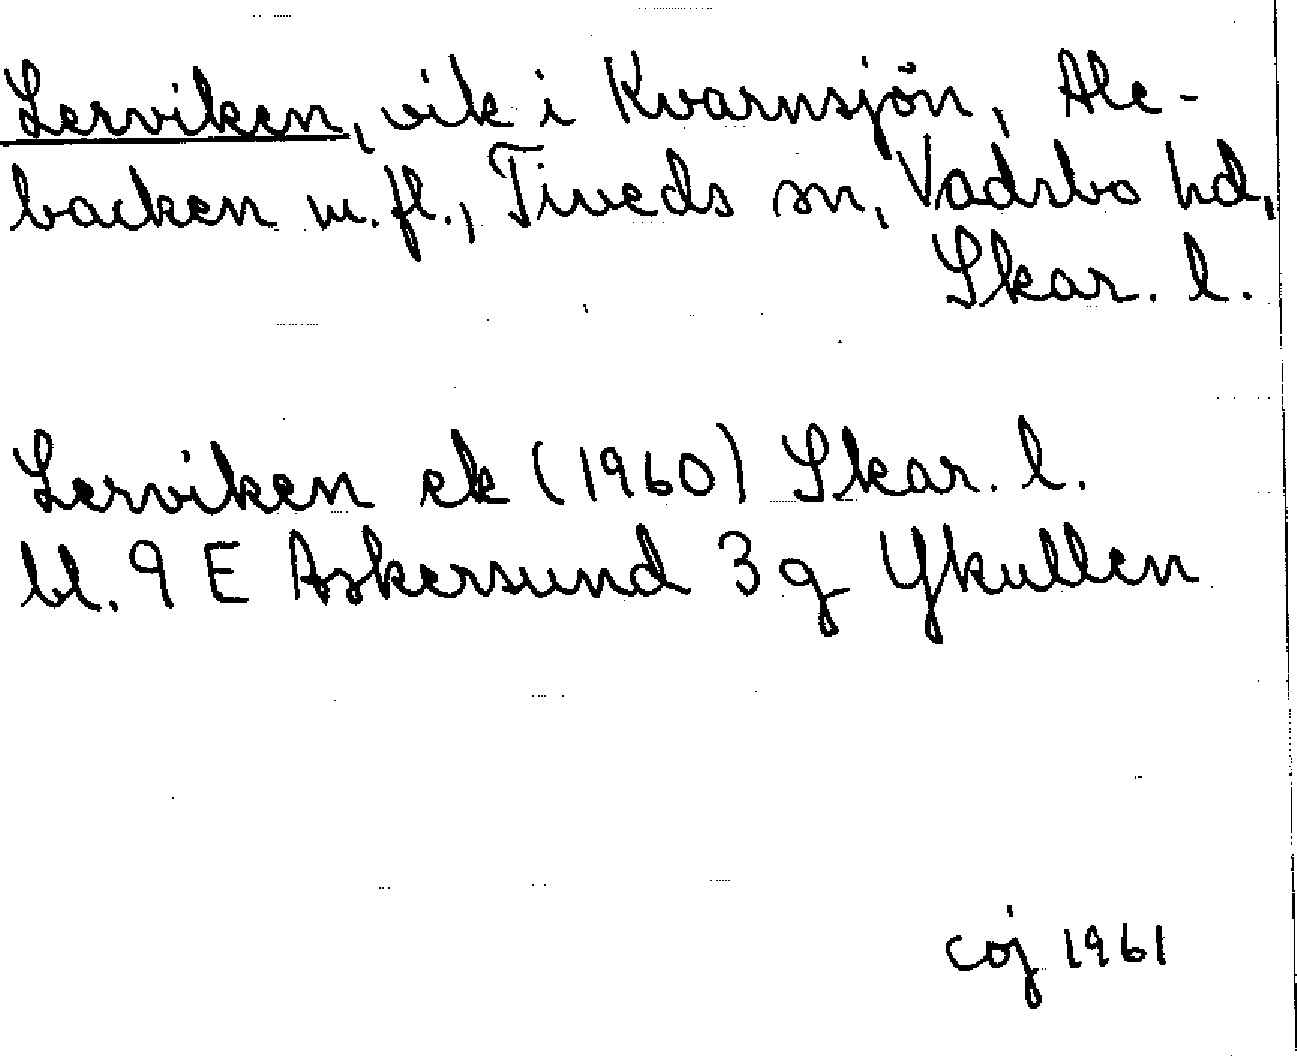 Lerviken, vik i Kvarnsjön, Ale-
backen m. fl., Tiveds sn, Vadsbo hd,
Skar. l.
Lerviken ek (1960) Skar. l.
bl. 9 E Askersund 3 g Ykullen
coj 1961